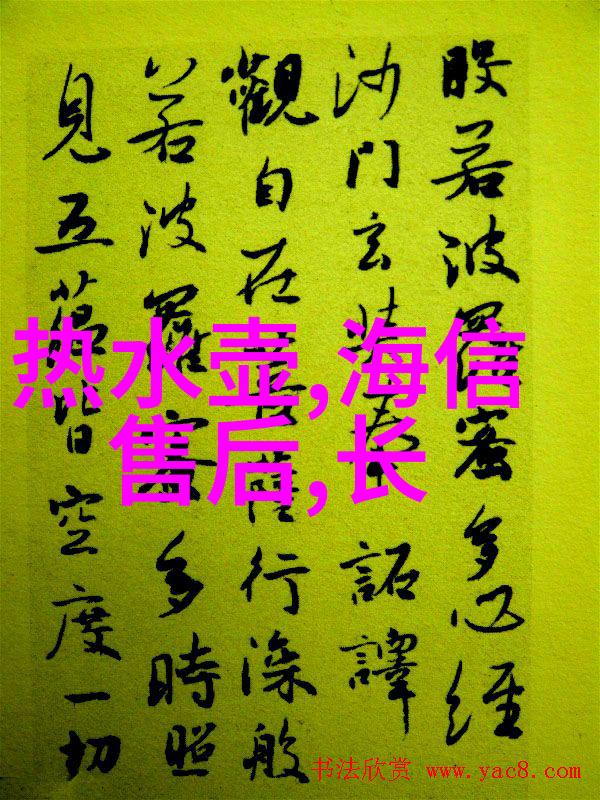 般若波羅蜜多心經
沙門玄奘奉詔譯
觀自在菩薩行深般
若波羅蜜多時照
見五蘊皆空度一切
热水壶,海信
售后,长
书法欣赏 www.yac8.com